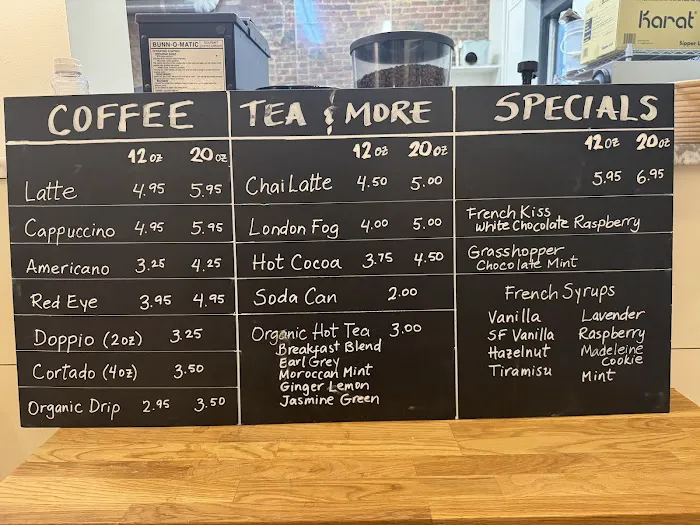 BUNN-O-MATIC
Karat
Sipper L
COFFEE
12 oz 20 oz
Latte 4.95 5.95
Cappuccino 4.95 5.95
Americano 3.25 4.25
Red Eye 3.95 4.95
Doppio (2oz) 3.25
Cortado (4oz) 3.50
Organic Drip 2.95 3.50
TEA & MORE
12 oz 20 oz
Chai Latte 4.50 5.00
London Fog 4.00 5.00
Hot Cocoa 3.75 4.50
Soda Can 2.00
Organic Hot Tea 3.00
Breakfast Blend
Earl Grey
Moroccan Mint
Ginger Lemon
Jasmine Green
SPECIALS
12 oz 20 oz
5.95 6.95
French Kiss
White Chocolate Raspberry
Grasshopper
Chocolate Mint
French Syrups
Vanilla Lavender
SF Vanilla Raspberry
Hazelnut Madeleine
Cookie
Tiramisu Mint